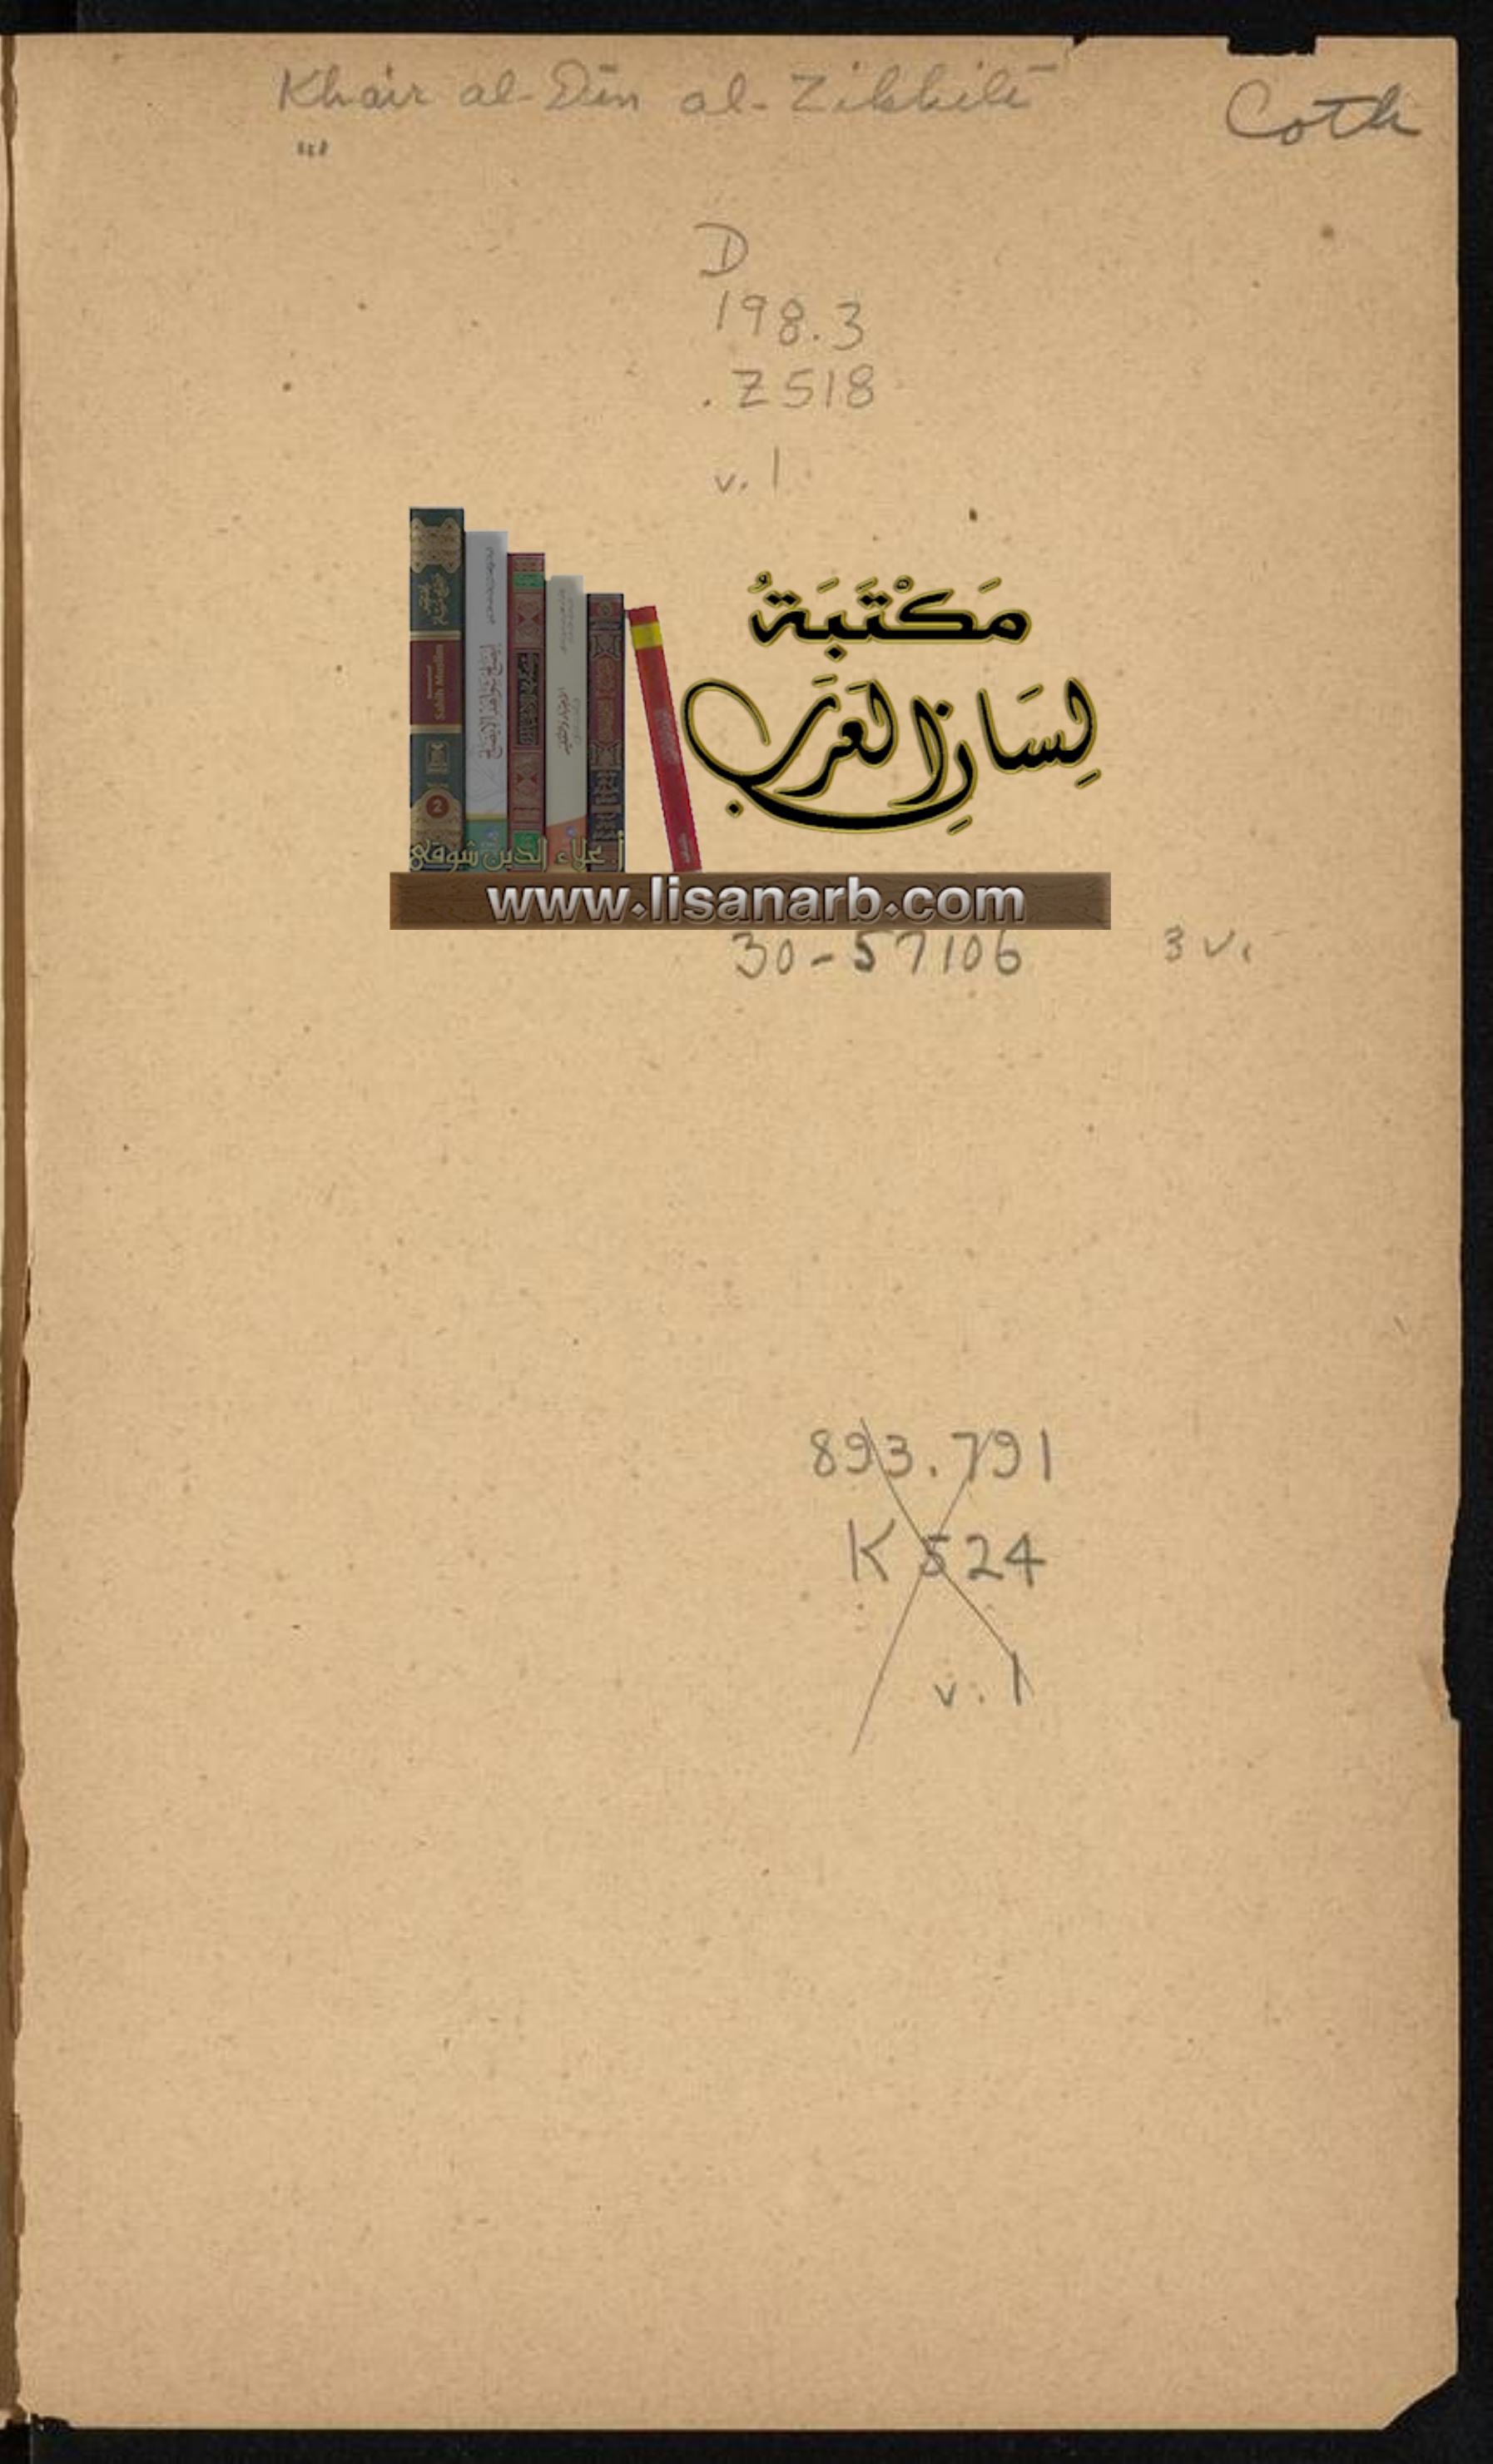 Khair al-Dīn al-Zikkilī
Coth
D
198.3
.Z518
v. 1
مَكْتَبَةُ
لِسَانِ الْعَرَبِ
أ. علاء الدين شوقي
www.lisanarb.com
30-57106
3 v.
893.791
K 524
v. 1